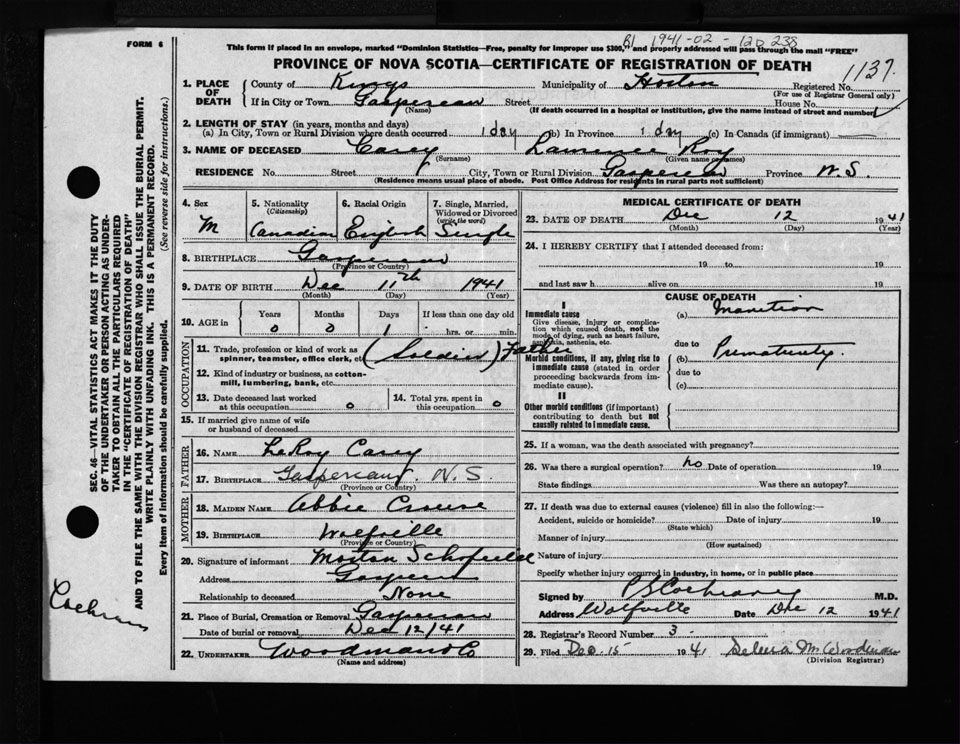 FORM 6
B1 1941-02-120238
This form if placed in an envelope, marked "Dominion Statistics—Free, penalty for improper use $300," and properly addressed will pass through the mail "FREE"
PROVINCE OF NOVA SCOTIA—CERTIFICATE OF REGISTRATION OF DEATH
1137.
1. PLACE OF DEATH
County of Kings Municipality of Horton Registered No.
(For use of Registrar General only)
If in City or Town Gaspereau Street House No.
(Name) (If death occurred in a hospital or institution, give the name instead of street and number)
2. LENGTH OF STAY (in years, months and days)
(a) In City, Town or Rural Division where death occurred 1 day (b) In Province 1 day (c) In Canada (if immigrant)
3. NAME OF DECEASED Carey Lawrence Roy
(Surname) (Given name or names)
RESIDENCE No. Street City, Town or Rural Division Gaspereau Province N.S.
(Residence means usual place of abode. Post Office Address for residents in rural parts not sufficient)
4. Sex M
5. Nationality (Citizenship) Canadian
6. Racial Origin English
7. Single, Married, Widowed or Divorced (write the word) Single
8. BIRTHPLACE Gaspereau
(Province or Country)
9. DATE OF BIRTH Dec 11th 1941
(Month) (Day) (Year)
10. AGE in Years Months Days If less than one day old
0 0 1 hrs. or min.
OCCUPATION
11. Trade, profession or kind of work as spinner, teamster, office clerk, etc. (Soldier) Father
12. Kind of industry or business, as cotton-mill, lumbering, bank, etc.
13. Date deceased last worked at this occupation 0
14. Total yrs. spent in this occupation 0
15. If married give name of wife or husband of deceased
FATHER
16. NAME LeRoy Carey
17. BIRTHPLACE Gaspereau N.S.
(Province or Country)
MOTHER
18. MAIDEN NAME Abbie Crouse
19. BIRTHPLACE Wolfville
(Province or Country)
20. Signature of informant Morton Schofield
Address Gaspereau
Relationship to deceased None
21. Place of Burial, Cremation or Removal Gaspereau
Date of burial or removal Dec 12/41
22. UNDERTAKER Woodmans Co
(Name and address)
MEDICAL CERTIFICATE OF DEATH
23. DATE OF DEATH Dec 12 1941
(Month) (Day) (Year)
24. I HEREBY CERTIFY that I attended deceased from:
19 to 19
and last saw h alive on 19
CAUSE OF DEATH
I
Immediate cause
Give disease, injury or complication which caused death, not the mode of dying, such as heart failure, asphyxia, asthenia, etc.
(a) Inanition
due to
Morbid conditions, if any, giving rise to immediate cause (stated in order proceeding backwards from immediate cause).
(b) Prematurity.
due to
(c)
II
Other morbid conditions (if important) contributing to death but not causally related to immediate cause.
25. If a woman, was the death associated with pregnancy?
26. Was there a surgical operation? no Date of operation 19
State findings Was there an autopsy?
27. If death was due to external causes (violence) fill in also the following:—
Accident, suicide or homicide? Date of injury 19
(State which)
Manner of injury
(How sustained)
Nature of injury
Specify whether injury occurred in industry, in home, or in public place
Signed by Cochrane M.D.
Address Wolfville Date Dec 12 1941
28. Registrar's Record Number 3-
29. Filed Dec. 15 1941 M. Woodman
(Division Registrar)
SEC. 46—VITAL STATISTICS ACT MAKES IT THE DUTY
OF THE UNDERTAKER OR PERSON ACTING AS UNDER-
TAKER TO OBTAIN ALL THE PARTICULARS REQUIRED
IN THE "CERTIFICATE OF REGISTRATION OF DEATH"
AND TO FILE THE SAME WITH THE DIVISION REGISTRAR WHO SHALL ISSUE THE BURIAL PERMIT.
WRITE PLAINLY WITH UNFADING INK. THIS IS A PERMANENT RECORD.
Every item of information should be carefully supplied. (See reverse side for instructions.)
Cochrane